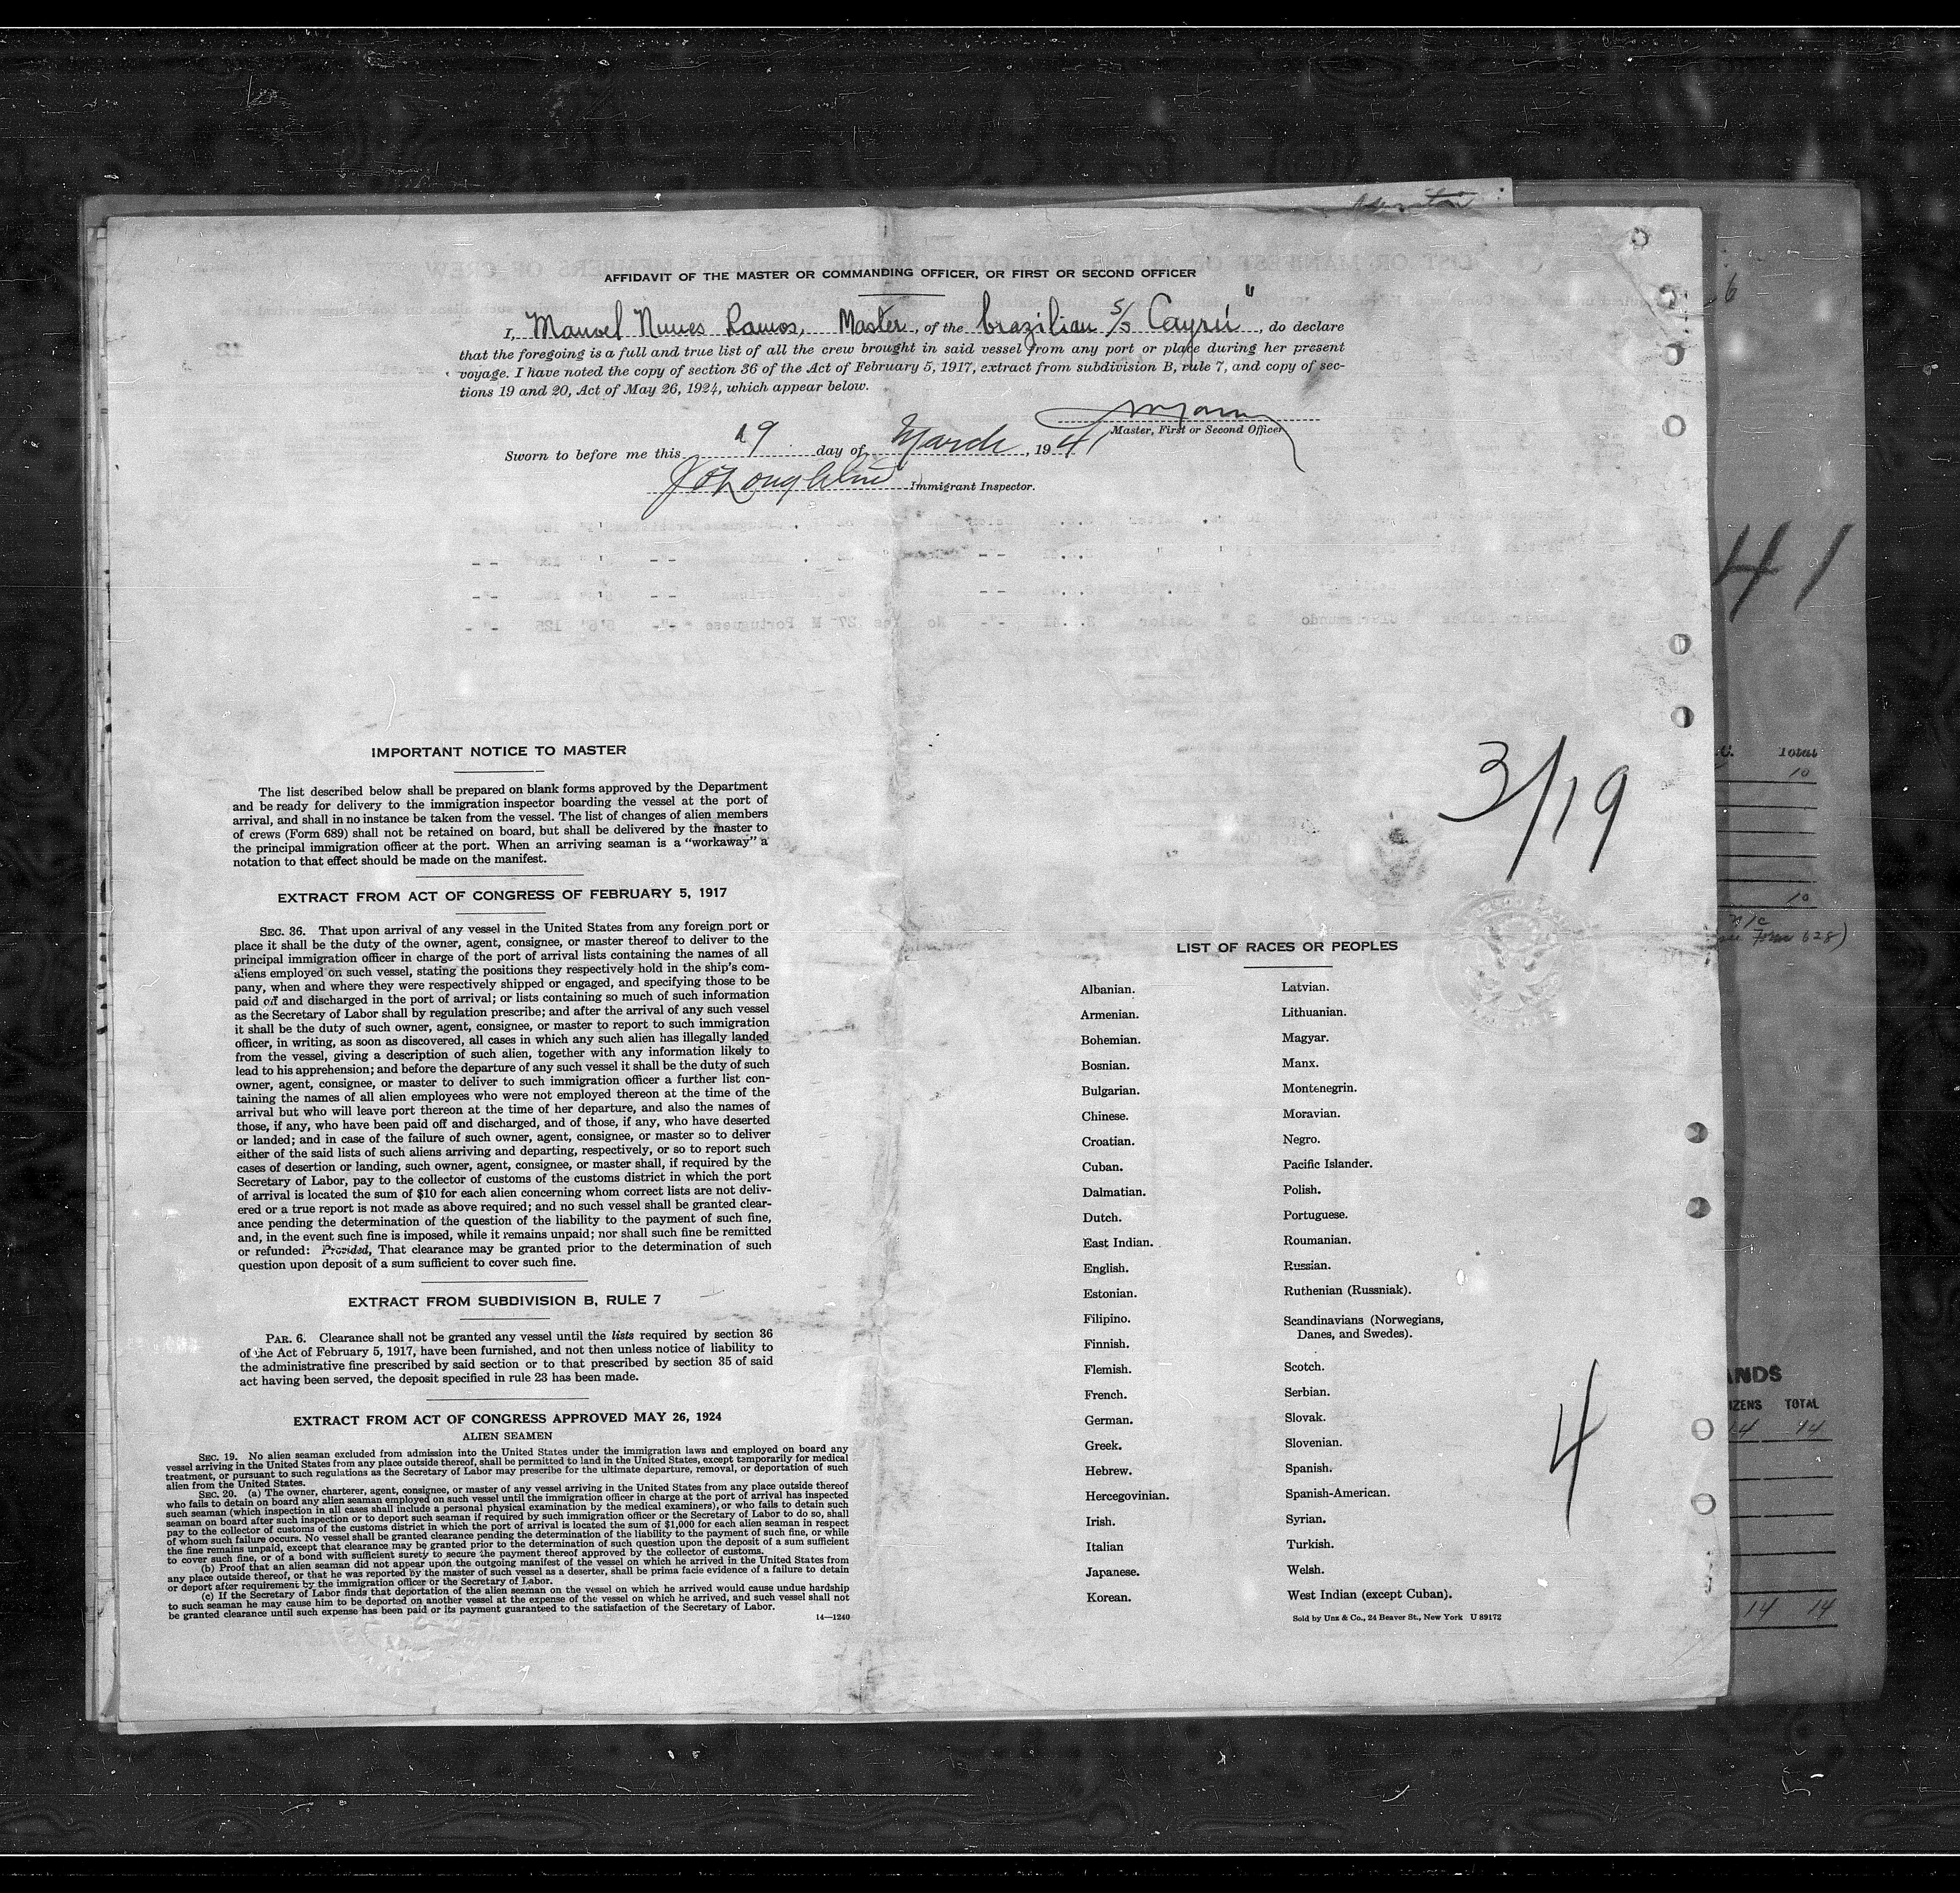 AFFIDAVIT OF THE MASTER OR COMMANDING OFFICER, OR FIRST OR SECOND OFFICER
I, Manoel Nunes Ramos, Master, of the brazilian S/S Cayrú", do declare
that the foregoing is a full and true list of all the crew brought in said vessel from any port or place during her present
voyage. I have noted the copy of section 36 of the Act of February 5, 1917, extract from subdivision B, rule 7, and copy of sec-
tions 19 and 20, Act of May 26, 1924, which appear below.
Master, First or Second Officer
Sworn to before me this 19 day of March, 1941
Immigrant Inspector.
41
3/19
IMPORTANT NOTICE TO MASTER
The list described below shall be prepared on blank forms approved by the Department
and be ready for delivery to the immigration inspector boarding the vessel at the port of
arrival, and shall in no instance be taken from the vessel. The list of changes of alien members
of crews (Form 689) shall not be retained on board, but shall be delivered by the master to
the principal immigration officer at the port. When an arriving seaman is a "workaway" a
notation to that effect should be made on the manifest.
EXTRACT FROM ACT OF CONGRESS OF FEBRUARY 5, 1917
SEC. 36. That upon arrival of any vessel in the United States from any foreign port or
place it shall be the duty of the owner, agent, consignee, or master thereof to deliver to the
principal immigration officer in charge of the port of arrival lists containing the names of all
aliens employed on such vessel, stating the positions they respectively hold in the ship's com-
pany, when and where they were respectively shipped or engaged, and specifying those to be
paid off and discharged in the port of arrival; or lists containing so much of such information
as the Secretary of Labor shall by regulation prescribe; and after the arrival of any such vessel
it shall be the duty of such owner, agent, consignee, or master to report to such immigration
officer, in writing, as soon as discovered, all cases in which any such alien has illegally landed
from the vessel, giving a description of such alien, together with any information likely to
lead to his apprehension; and before the departure of any such vessel it shall be the duty of such
owner, agent, consignee, or master to deliver to such immigration officer a further list con-
taining the names of all alien employees who were not employed thereon at the time of the
arrival but who will leave port thereon at the time of her departure, and also the names of
those, if any, who have been paid off and discharged, and of those, if any, who have deserted
or landed; and in case of the failure of such owner, agent, consignee, or master so to deliver
either of the said lists of such aliens arriving and departing, respectively, or so to report such
cases of desertion or landing, such owner, agent, consignee, or master shall, if required by the
Secretary of Labor, pay to the collector of customs of the customs district in which the port
of arrival is located the sum of $10 for each alien concerning whom correct lists are not deliv-
ered or a true report is not made as above required; and no such vessel shall be granted clear-
ance pending the determination of the question of the liability to the payment of such fine,
and, in the event such fine is imposed, while it remains unpaid; nor shall such fine be remitted
or refunded: Provided, That clearance may be granted prior to the determination of such
question upon deposit of a sum sufficient to cover such fine.
EXTRACT FROM SUBDIVISION B, RULE 7
PAR. 6. Clearance shall not be granted any vessel until the lists required by section 36
of the Act of February 5, 1917, have been furnished, and not then unless notice of liability to
the administrative fine prescribed by said section or to that prescribed by section 35 of said
act having been served, the deposit specified in rule 23 has been made.
EXTRACT FROM ACT OF CONGRESS APPROVED MAY 26, 1924
ALIEN SEAMEN
SEC. 19. No alien seaman excluded from admission into the United States under the immigration laws and employed on board any
vessel arriving in the United States from any place outside thereof, shall be permitted to land in the United States, except temporarily for medical
treatment, or pursuant to such regulations as the Secretary of Labor may prescribe for the ultimate departure, removal, or deportation of such
alien from the United States.
SEC. 20. (a) The owner, charterer, agent, consignee, or master of any vessel arriving in the United States from any place outside thereof
who fails to detain on board any alien seaman employed on such vessel until the immigration officer in charge at the port of arrival has inspected
such seaman (which inspection in all cases shall include a personal physical examination by the medical examiners), or who fails to detain such
seaman on board after such inspection or to deport such seaman if required by such immigration officer or the Secretary of Labor to do so, shall
pay to the collector of customs of the customs district in which the port of arrival is located the sum of $1,000 for each alien seaman in respect
of whom such failure occurs. No vessel shall be granted clearance pending the determination of the liability to the payment of such fine, or while
the fine remains unpaid, except that clearance may be granted prior to the determination of such question upon the deposit of a sum sufficient
to cover such fine, or of a bond with sufficient surety to secure the payment thereof approved by the collector of customs.
(b) Proof that an alien seaman did not appear upon the outgoing manifest of the vessel on which he arrived in the United States from
any place outside thereof, or that he was reported by the master of such vessel as a deserter, shall be prima facie evidence of a failure to detain
or deport after requirement by the immigration officer or the Secretary of Labor.
(c) If the Secretary of Labor finds that deportation of the alien seaman on the vessel on which he arrived would cause undue hardship
to such seaman he may cause him to be deported on another vessel at the expense of the vessel on which he arrived, and such vessel shall not
be granted clearance until such expense has been paid or its payment guaranteed to the satisfaction of the Secretary of Labor.
14—1240
LIST OF RACES OR PEOPLES
Albanian.
Armenian.
Bohemian.
Bosnian.
Bulgarian.
Chinese.
Croatian.
Cuban.
Dalmatian.
Dutch.
East Indian.
English.
Estonian.
Filipino.
Finnish.
Flemish.
French.
German.
Greek.
Hebrew.
Hercegovinian.
Irish.
Italian
Japanese.
Korean.
Latvian.
Lithuanian.
Magyar.
Manx.
Montenegrin.
Moravian.
Negro.
Pacific Islander.
Polish.
Portuguese.
Roumanian.
Russian.
Ruthenian (Russniak).
Scandinavians (Norwegians,
Danes, and Swedes).
Scotch.
Serbian.
Slovak.
Slovenian.
Spanish.
Spanish-American.
Syrian.
Turkish.
Welsh.
West Indian (except Cuban).
Sold by Unz & Co., 24 Beaver St., New York U 89172
4
Total
10
10
628)
TOTAL
14
14 14